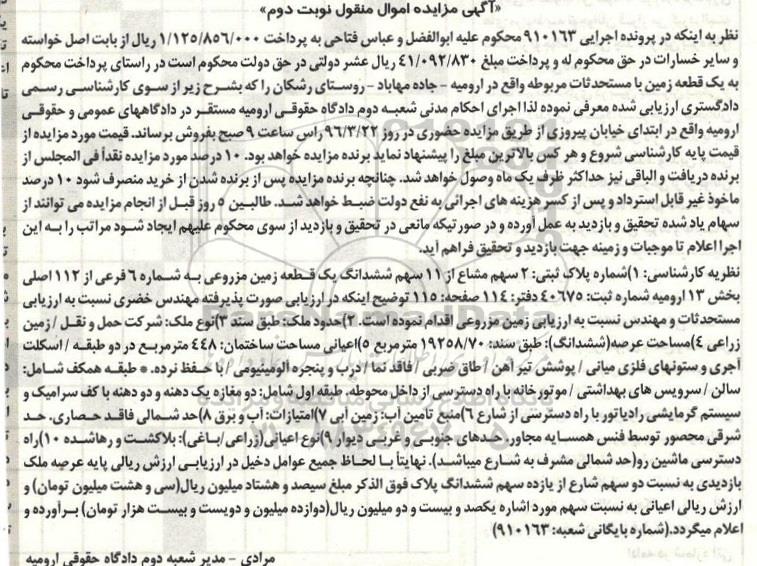 «آگهی مزایده اموال منقول نوبت دوم»
نظر به اینکه در پرونده اجرایی ۹۱۰۱۶۳ محکوم علیه ابوالفضل و عباس فتاحی به پرداخت ۱/۱۲۵/۸۵۶/۰۰۰ ریال از بابت اصل خواسته
و سایر خسارات در حق محکوم له و پرداخت مبلغ ۴۱/۰۹۲/۸۳۰ ریال عشر دولتی در حق دولت محکوم است در راستای پرداخت محکوم
به یک قطعه زمین با مستحدثات مربوطه واقع در ارومیه - جاده مهاباد - روستای رشکان را که بشرح زیر از سوی کارشناسی رسمی
دادگستری ارزیابی شده معرفی نموده لذا اجرای احکام مدنی شعبه دوم دادگاه حقوقی ارومیه مستقر در دادگاههای عمومی و حقوقی
ارومیه واقع در ابتدای خیابان پیروزی از طریق مزایده حضوری در روز ۹۶/۳/۲۲ راس ساعت ۹ صبح بفروش برساند. قیمت مورد مزایده از
قیمت پایه کارشناسی شروع و هر کس بالاترین مبلغ را پیشنهاد نماید برنده مزایده خواهد بود. ۱۰ درصد مورد مزایده نقداً فی المجلس از
برنده دریافت و الباقی نیز حداکثر ظرف یک ماه وصول خواهد شد. چنانچه برنده مزایده پس از برنده شدن از خرید منصرف شود ۱۰ درصد
ماخوذ غیر قابل استرداد و پس از کسر هزینه های اجرائی به نفع دولت ضبط خواهد شد. طالبین ۵ روز قبل از انجام مزایده می توانند از
سهام یاد شده تحقیق و بازدید به عمل آورده و در صورتیکه مانعی در تحقیق و بازدید از سوی محکوم علیهم ایجاد شود مراتب را به این
اجرا اعلام تا موجبات و زمینه جهت بازدید و تحقیق فراهم آید.
نظریه کارشناسی: ۱)شماره پلاک ثبتی: ۲ سهم مشاع از ۱۱ سهم ششدانگ یک قطعه زمین مزروعی به شماره ۶ فرعی از ۱۱۲ اصلی
بخش ۱۳ ارومیه شماره ثبت: ۴۰۶۷۵ دفتر: ۱۱۴ صفحه: ۱۱۵ توضیح اینکه در ارزیابی صورت پذیرفته مهندس خضری نسبت به ارزیابی
مستحدثات و مهندس نسبت به ارزیابی زمین مزروعی اقدام نموده است. ۲)حدود ملک: طبق سند ۳)نوع ملک: شرکت حمل و نقل / زمین
زراعی ۴)مساحت عرصه(ششدانگ): طبق سند: ۱۹۲۵۸/۷۰ مترمربع ۵)اعیانی مساحت ساختمان: ۴۴۸ مترمربع در دو طبقه / اسکلت
آجری و ستونهای فلزی میانی / پوشش تیر آهن / طاق ضربی / فاقد نما / درب و پنجره آلومینیومی / با حفظ نرده. * طبقه همکف شامل:
سالن / سرویس های بهداشتی / موتورخانه با راه دسترسی از داخل محوطه. طبقه اول شامل: دو مغازه یک دهنه و دو دهنه با کف سرامیک و
سیستم گرمایشی رادیاتور با راه دسترسی از شارع ۶)منبع تامین آب: زمین آبی ۷)امتیازات: آب و برق ۸)حد شمالی فاقد حصاری. حد
شرقی محصور توسط فنس همسایه مجاور. حدهای جنوبی و غربی دیوار ۹)نوع اعیانی(زراعی/باغی): بلاکشت و رهاشده ۱۰)راه
دسترسی ماشین رو(حد شمالی مشرف به شارع میباشد). نهایتاً با لحاظ جمیع عوامل دخیل در ارزیابی ارزش ریالی پایه عرصه ملک
بازدیدی به نسبت دو سهم شارع از یازده سهم ششدانگ پلاک فوق الذکر مبلغ سیصد و هشتاد میلیون ریال(سی و هشت میلیون تومان) و
ارزش ریالی اعیانی به نسبت سهم مورد اشاره یکصد و بیست و دو میلیون ریال(دوازده میلیون و دویست و بیست هزار تومان) برآورده و
اعلام میگردد.(شماره بایگانی شعبه: ۹۱۰۱۶۳)
مرادی - مدیر شعبه دوم دادگاه حقوقی ارومیه
ParsNamadData